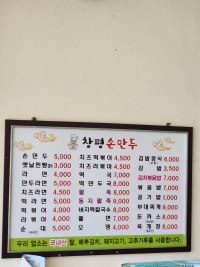 창평손만두
손만두 5,000
옛날찐빵 3,000
라면 4,000
만두라면 5,000
치즈라면 4,500
떡라면 4,500
떡볶이 4,000
라볶이 4,000
순대 4,000
치즈떡볶이 4,500
치즈라볶이 4,500
떡국 7,000
떡만두국 8,000
팥죽 8,000
동지팥죽 9,000
바지락칼국수 8,000
쫄면 7,000
오뎅 4,000
김밥 3,500
김치볶음밥 7,000
볶음밥 7,000
공기밥
부대찌개 9,000
돈까스 8,000
육개장 8,000
우리 업소는 국내산 쌀, 배추김치, 돼지고기, 고추가루를 사용합니다.